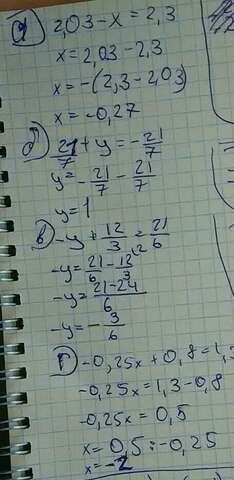 а) 2,03 - x = 2,3
x = 2,03 - 2,3
x = -(2,3 - 2,03)
x = -0,27
б) 21/7 + y = -21/7
y = -21/7 - 21/7
y = 1
в) -y + 12/3 = 21/6
-y = 21/6 - 12/3
-y = 21-24/6
-y = -3/6
г) -0,25x + 0,8 = 1,3
-0,25x = 1,3 - 0,8
-0,25x = 0,5
x = 0,5 : -0,25
x = -2